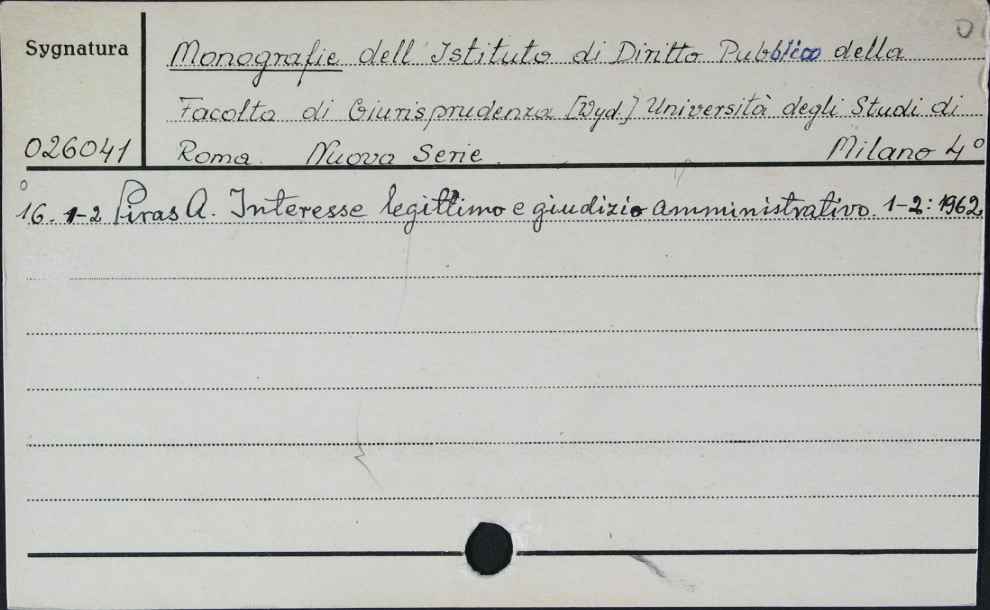 Sygnatura
Monografie dell' Istituto di Diritto Pubblico della
Facolta di Giurisprudenza [Wyd.] Università degli Studi di
026041 Roma. Nuova Serie. Milano 4°
16. 1-2 Piras A. Interesse legittimo e giudizio amministrativo. 1-2: 1962